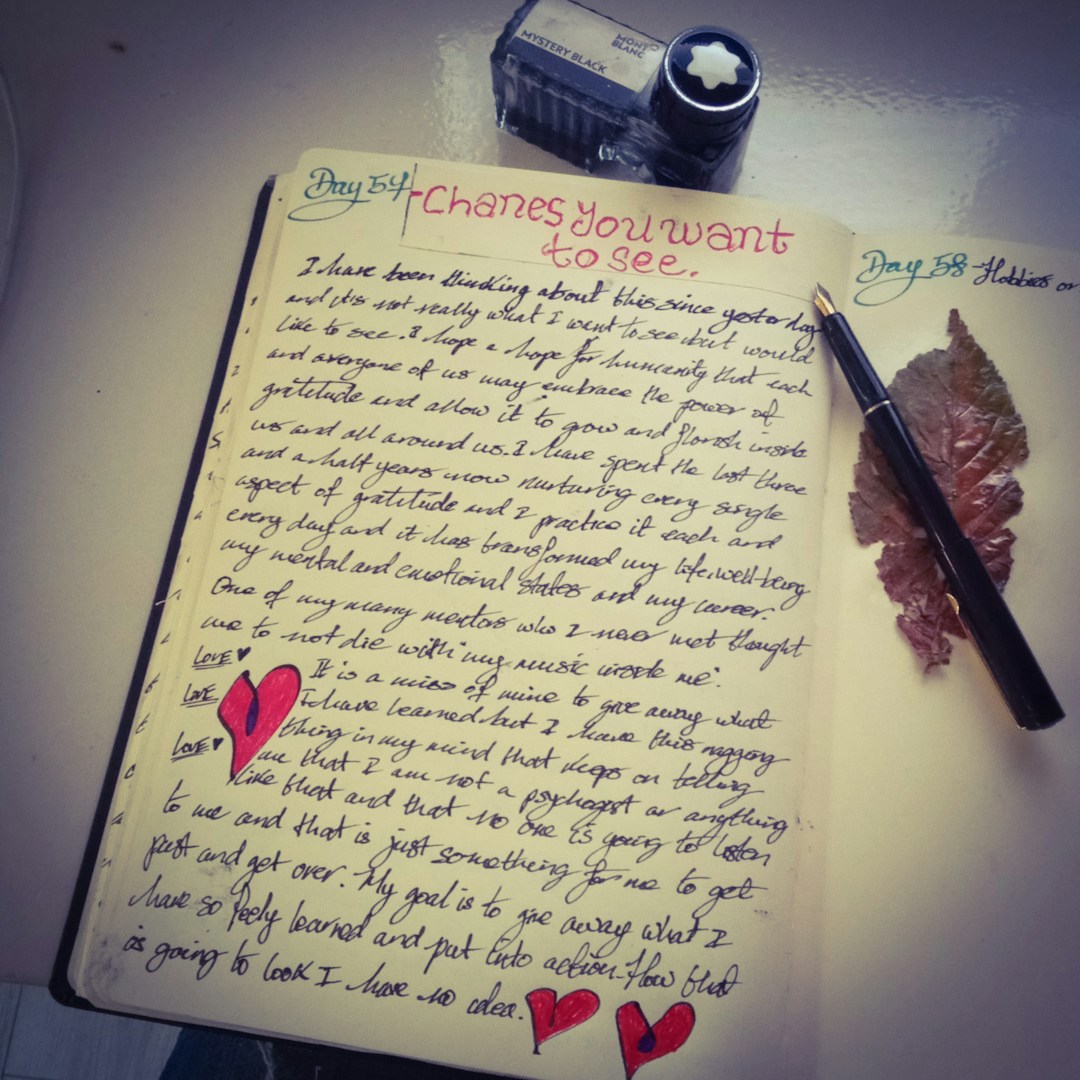 MYSTERY BLACK
MONT
BLANC
Day 57
-Chanes You want
to see.
I have been thinking about this since yesterday
and it's not really what I want to see but would
like to see. I hope a hope for humanity that each
and everyone of us may embrace the power of
gratitude and allow it to grow and florish inside
us and all around us. I have spent the last three
and a half years now nurturing every single
aspect of gratitude and I practice it each and
every day and it has transformed my life, well-being
my mental and emotional states and my career.
One of my many mentors who I never met thought
me to not die with "my music inside me".
LOVE ♥
It is a miss of mine to give away what
LOVE
I have learned but I have this nagging
thing in my mind that keeps on telling
LOVE ♥
me that I am not a psychogist or anything
like that and that no one is going to listen
to me and that is just something for me to get
past and get over. My goal is to give away what I
have so feely learned and put into action. How that
is going to look I have no idea.
Day 58 - Hobbies or